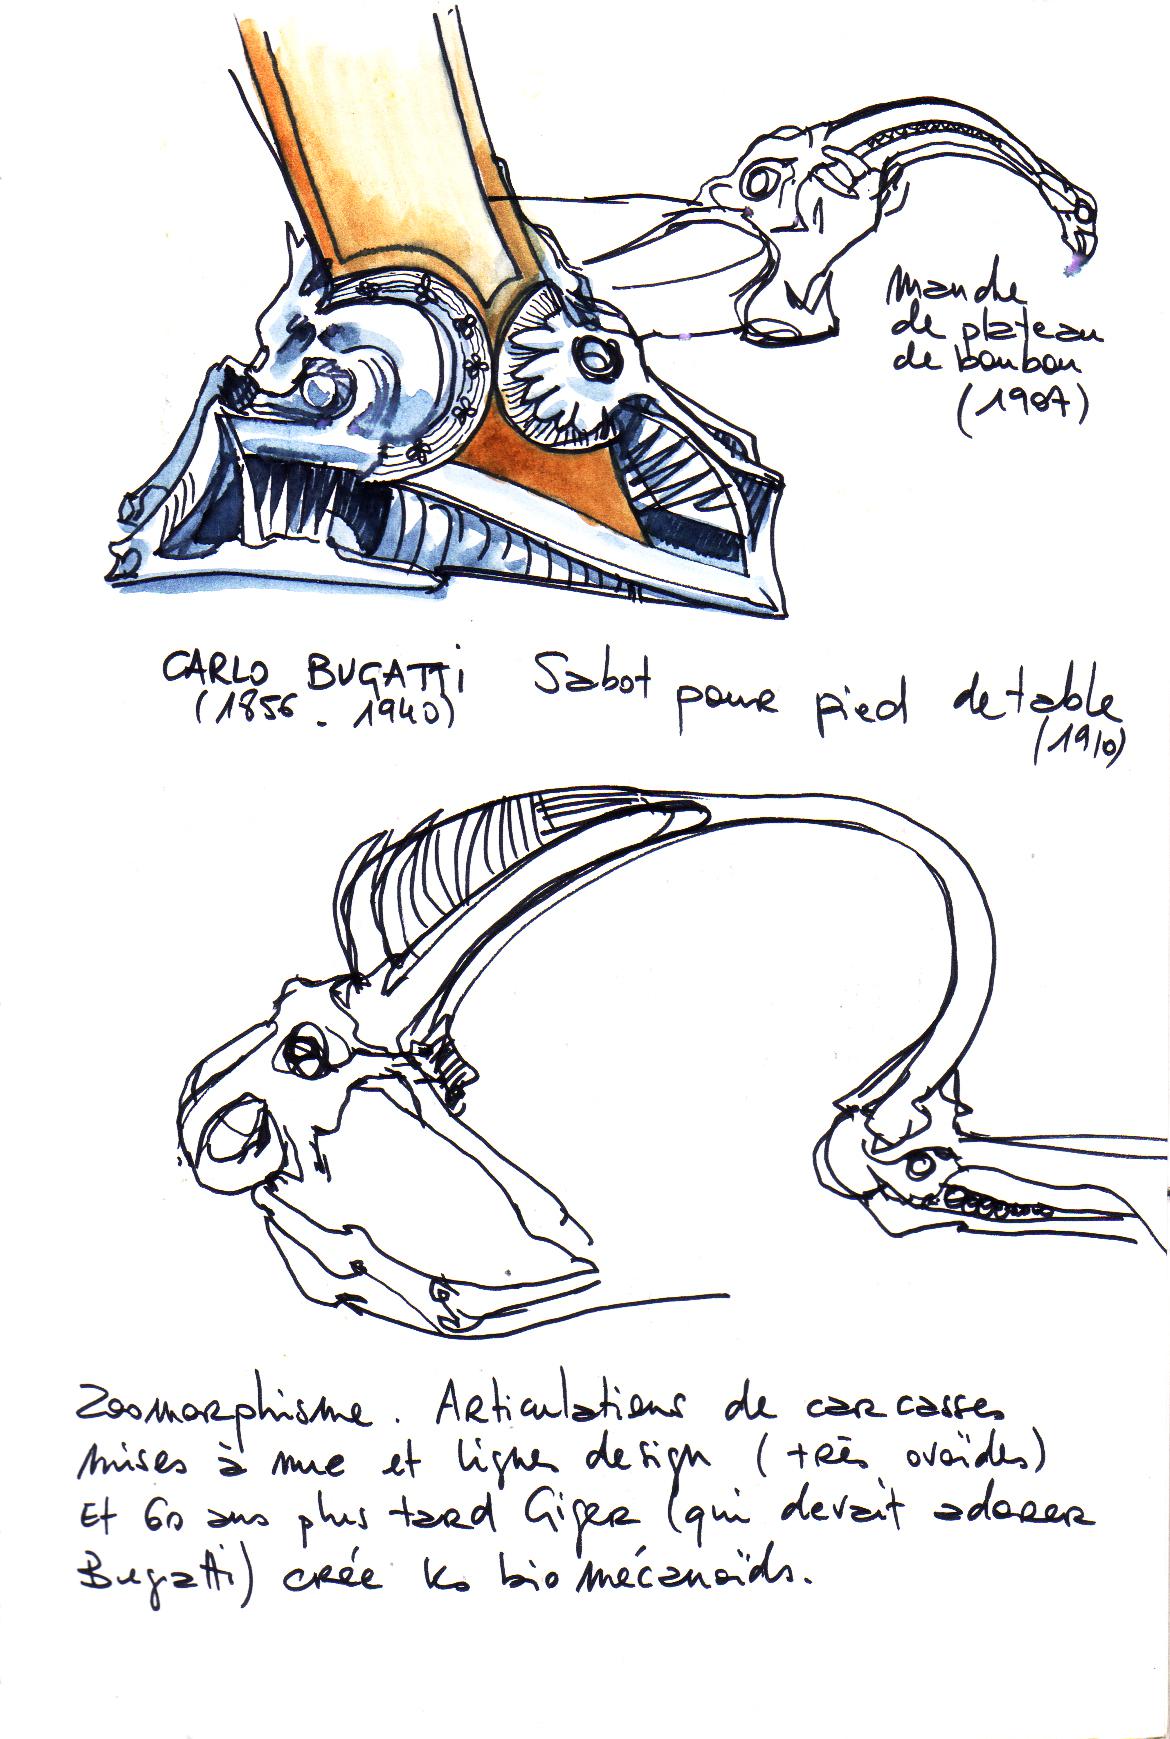 manche
de plateau
de bonbon
(1907)
CARLO BUGATTI Sabot pour pied de table
(1856 - 1940) (1910)
Zoomorphisme. Articulations de carcasses
mises à nue et lignes design (très ovoïdes)
Et 60 ans plus tard Giger (qui devait adorer
Bugatti) crée les bio mécanoïds.